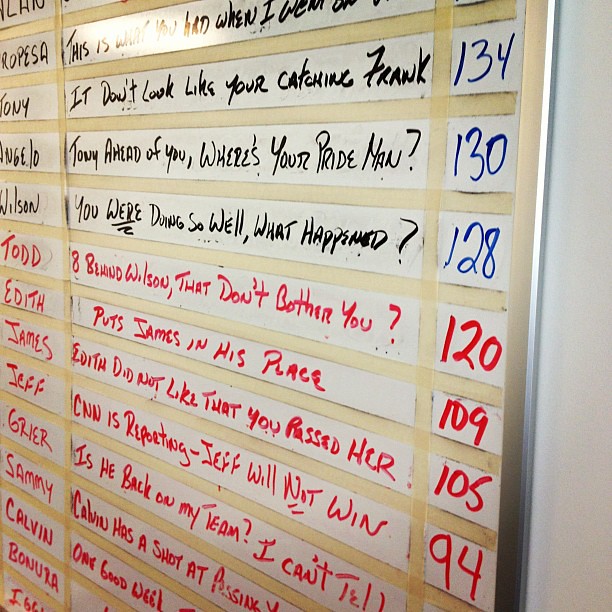 ROPESA THIS IS WHAT YOU HAD WHEN I WENT ON
TONY IT DON'T LOOK LIKE YOUR CATCHING FRANK 134
ANGELO TONY AHEAD OF YOU, WHERE'S YOUR PRIDE MAN? 130
WILSON YOU WERE DOING SO WELL, WHAT HAPPENED? 128
TODD 8 BEHIND WILSON, THAT DON'T BOTHER YOU? 120
EDITH PUTS JAMES IN HIS PLACE 109
JAMES EDITH DID NOT LIKE THAT YOU PASSED HER 105
JEFF CNN IS REPORTING - JEFF WILL NOT WIN 94
GRIER IS HE BACK ON MY TEAM? I CAN'T TELL
SAMMY CALVIN HAS A SHOT AT PASSING
CALVIN ONE GOOD WEEK
BONURA